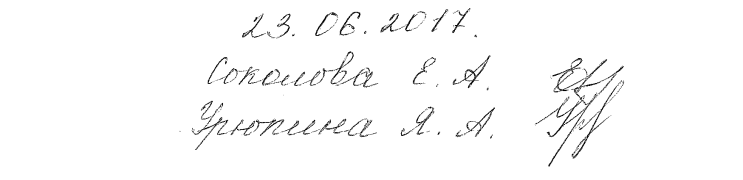 23.06.2017.
Соколова Е. А.
Урюпина Я. А.